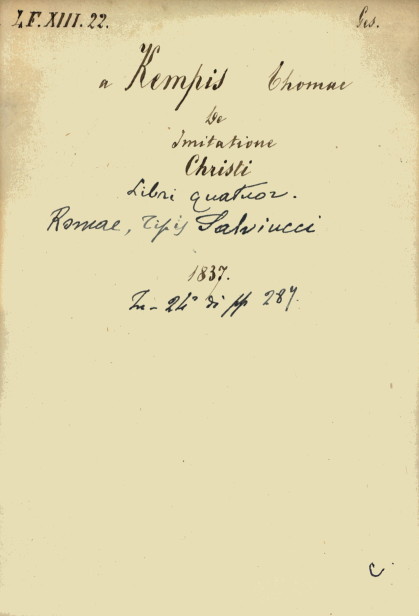 LF. XIII. 22. Ges.
a Kempis Thomae
De
Imitatione
Christi
Libri quatuor.
Romae, Tipis Salviucci
1837.
In-24° di pp 287.
C